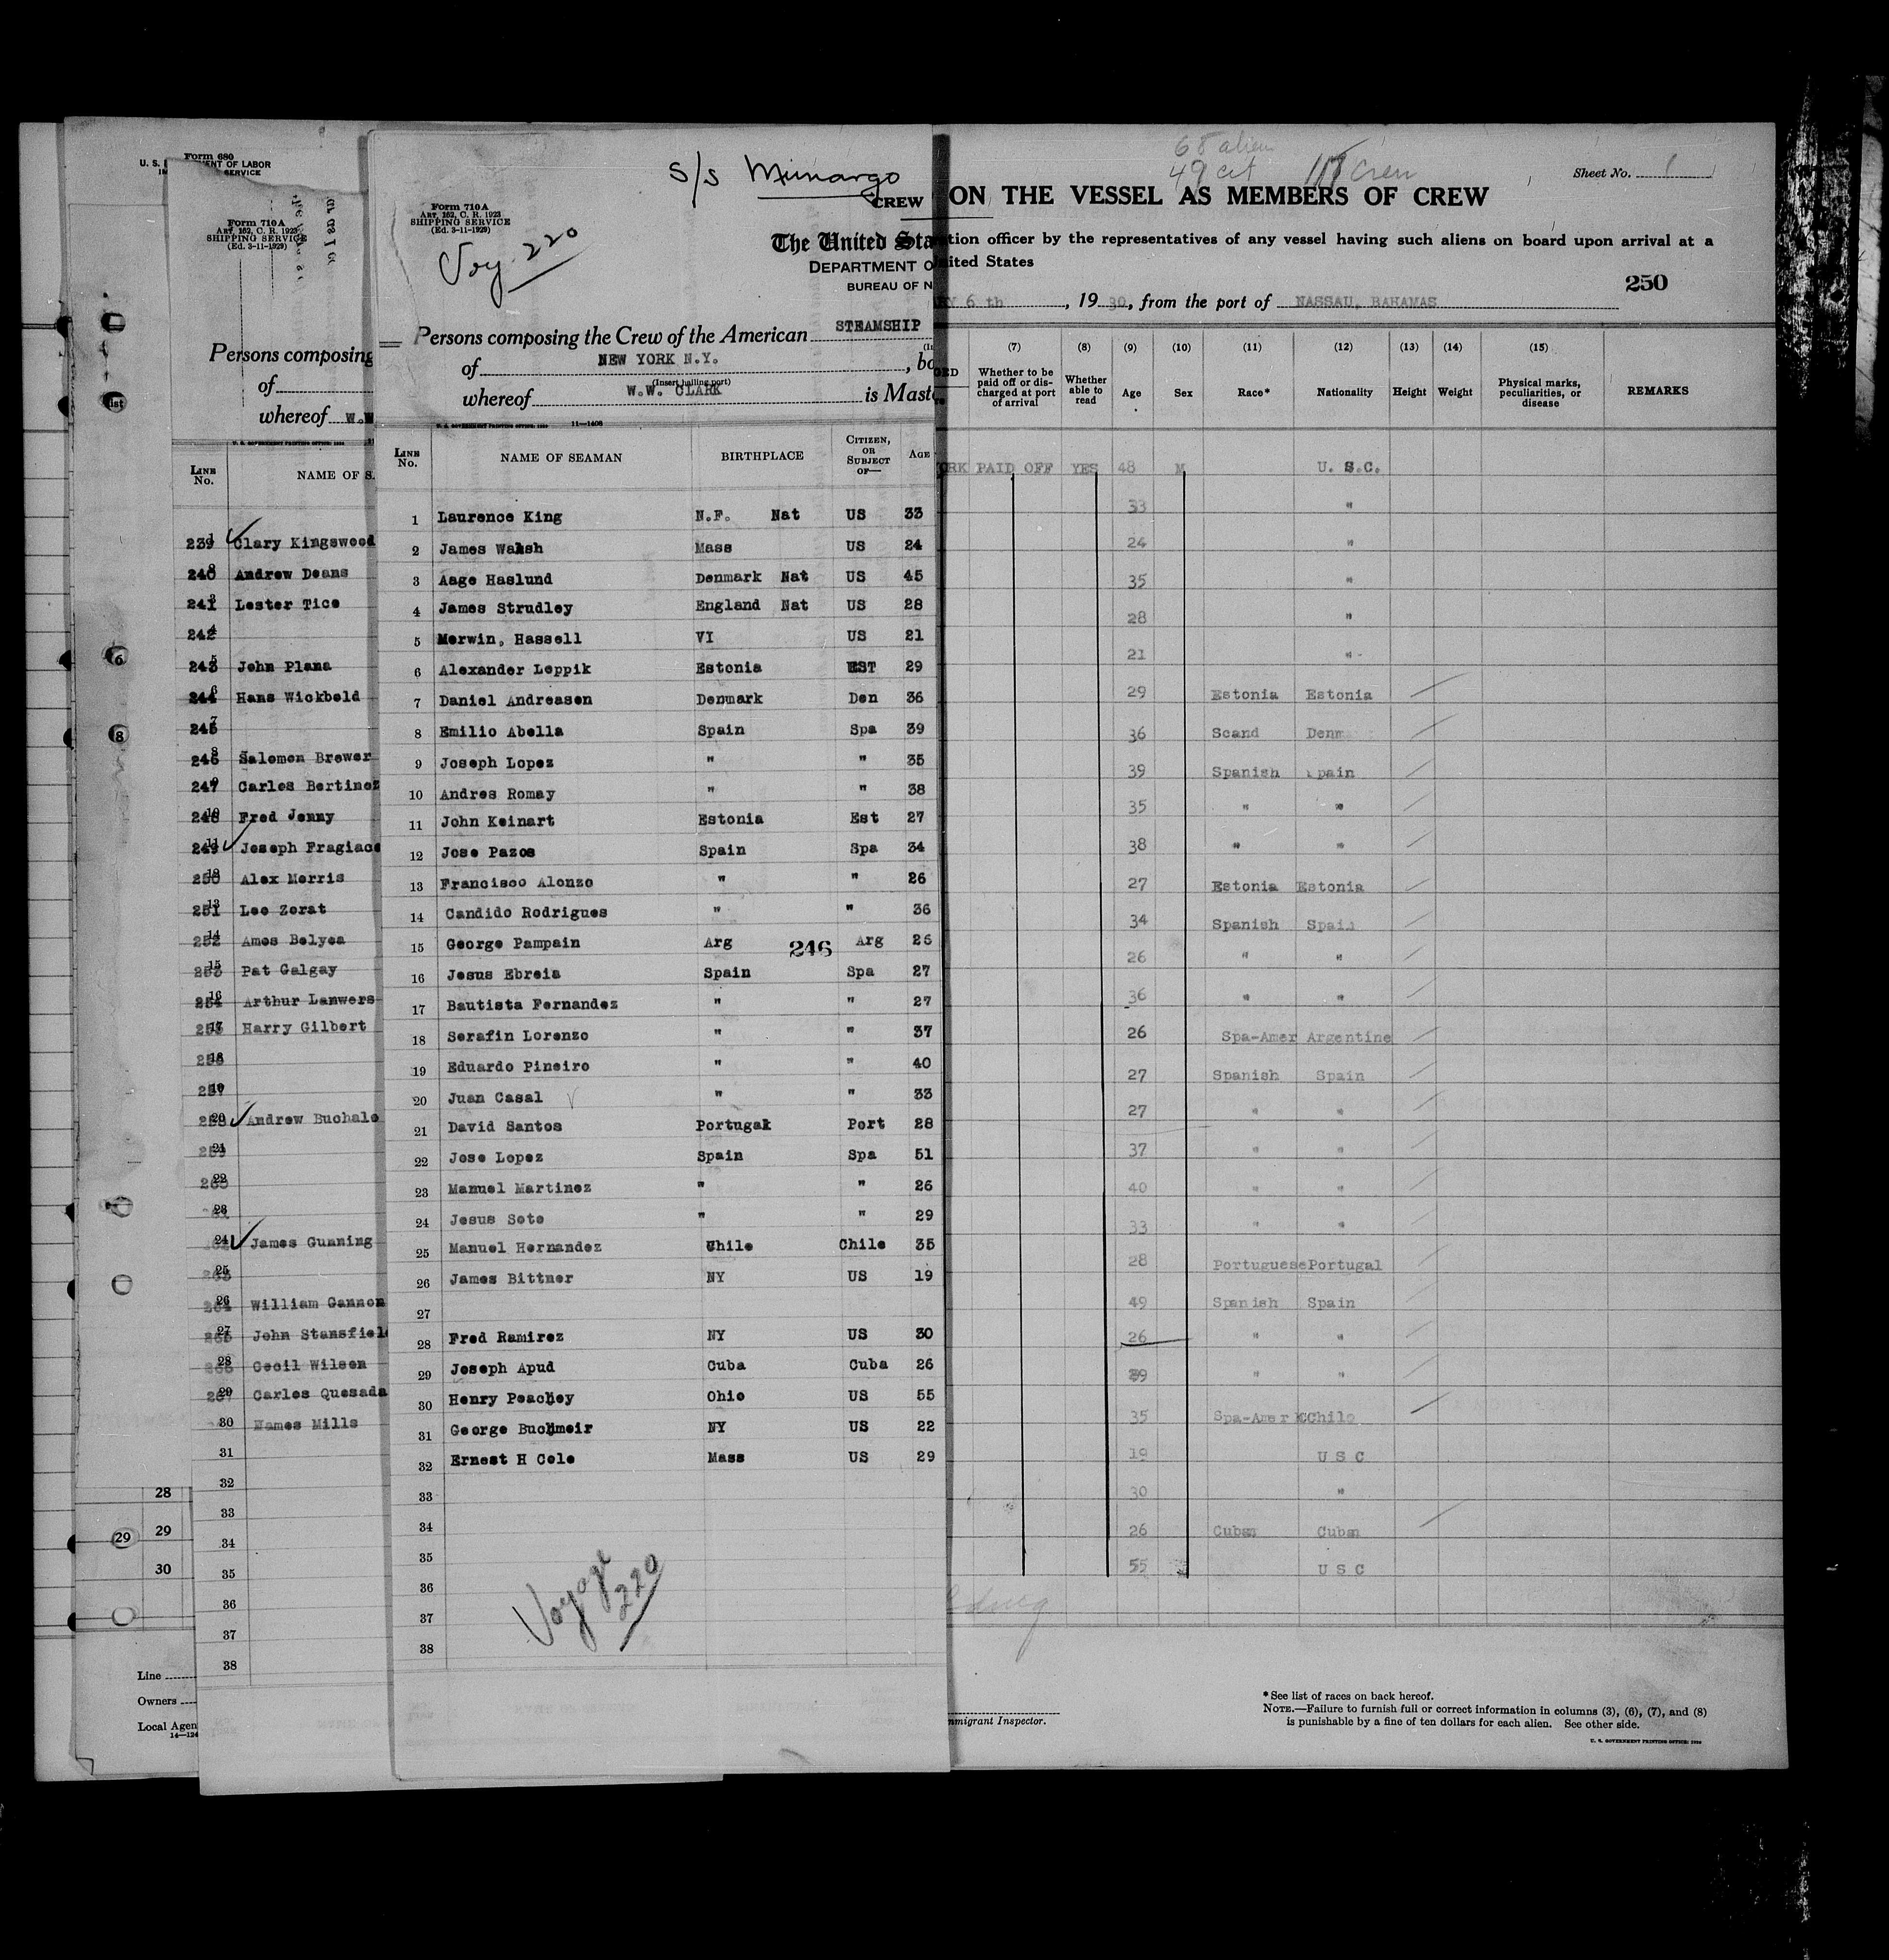 Form 680
U. S. DEPARTMENT OF LABOR
SERVICE
Form 710A
Art. 162, C. R. 1923
SHIPPING SERVICE
(Ed. 3-11-1929)
Persons composing
of
whereof W.W
U. S. GOVERNMENT PRINTING OFFICE: 1930
LINE No. NAME OF S
239 1 Clary Kingswood
240 2 Andrew Deans
241 3 Lester Tice
242 4
243 5 John Plana
244 6 Hans Wickbold
245 7
246 8 Salomon Brewer
247 9 Carlos Bertinez
248 10 Fred Jenny
249 11 Joseph Fragiaco
250 12 Alex Morris
251 13 Leo Zorat
252 14 Amos Belyea
253 15 Pat Galgay
254 16 Arthur Lanwers
255 17 Harry Gilbert
256 18
257 19
258 20 Andrew Buchalo
259 21
260 22
23
24 James Gunning
263 25
264 26 William Gannon
265 27 John Stansfield
266 28 Cecil Wilson
267 29 Carlos Quesada
30 Mames Mills
31
32
33
34
35
36
37
38
1st
6
8
29
28
29
30
Line
Owners
Local Agen
S/S Munargo
Form 710A
Art. 162, C. R. 1923
SHIPPING SERVICE
(Ed. 3-11-1929)
Voy. 220
CREW
The United Sta
DEPARTMENT O
BUREAU OF N
Persons composing the Crew of the American STEAMSHIP
of NEW YORK N.Y. , bo
(Insert hailing port)
whereof W.W. CLARK is Maste
U. S. GOVERNMENT PRINTING OFFICE: 1930 11—1408
LINE No. NAME OF SEAMAN BIRTHPLACE CITIZEN, OR SUBJECT OF— AGE
1 Laurence King N.F. Nat US 33
2 James Walsh Mass US 24
3 Aage Haslund Denmark Nat US 45
4 James Strudley England Nat US 28
5 Merwin, Hassell VI US 21
6 Alexander Leppik Estonia EST 29
7 Daniel Andreasen Denmark Den 36
8 Emilio Abella Spain Spa 39
9 Joseph Lopez " " 35
10 Andres Romay " " 38
11 John Keinart Estonia Est 27
12 Jose Pazos Spain Spa 34
13 Francisco Alonzo " " 26
14 Candido Rodrigues " " 36
15 George Pampain Arg 246 Arg 26
16 Jesus Ebreia Spain Spa 27
17 Bautista Fernandez " " 27
18 Serafin Lorenzo " " 37
19 Eduardo Pineiro " " 40
20 Juan Casal " " 33
21 David Santos Portugal Port 28
22 Jose Lopez Spain Spa 51
23 Manuel Martinez " " 26
24 Jesus Soto " " 29
25 Manuel Hernandez Chile Chile 35
26 James Bittner NY US 19
27
28 Fred Ramirez NY US 30
29 Joseph Apud Cuba Cuba 26
30 Henry Peachey Ohio US 55
31 George Buchmeir NY US 22
32 Ernest H Cole Mass US 29
33
34
35
36
37
38
Voyage 220
68 alien
49 cit 117 Crew
Sheet No. 1
ON THE VESSEL AS MEMBERS OF CREW
tion officer by the representatives of any vessel having such aliens on board upon arrival at a
nited States
250
RY 6 th , 19 30, from the port of NASSAU, BAHAMAS
(7) (8) (9) (10) (11) (12) (13) (14) (15)
GED Whether to be paid off or discharged at port of arrival Whether able to read Age Sex Race* Nationality Height Weight Physical marks, peculiarities, or disease REMARKS
ORK PAID OFF YES 48 M U. S.C.
33 "
24 "
35 "
28 "
21 "
29 Estonia Estonia
36 Scand Denm
39 Spanish Spain
35 " "
38 " "
27 Estonia Estonia
34 Spanish Spain
26 " "
36 " "
26 Spa-Amer Argentine
27 Spanish Spain
27 " "
37 " "
40 " "
33 " "
28 Portuguese Portugal
49 Spanish Spain
26 " "
39 " "
35 Spa-Amer Chile
19 U S C
30 "
26 Cuban Cuban
55 U S C
mmigrant Inspector.
* See list of races on back hereof.
NOTE.—Failure to furnish full or correct information in columns (3), (6), (7), and (8)
is punishable by a fine of ten dollars for each alien. See other side.
U. S. GOVERNMENT PRINTING OFFICE: 1930